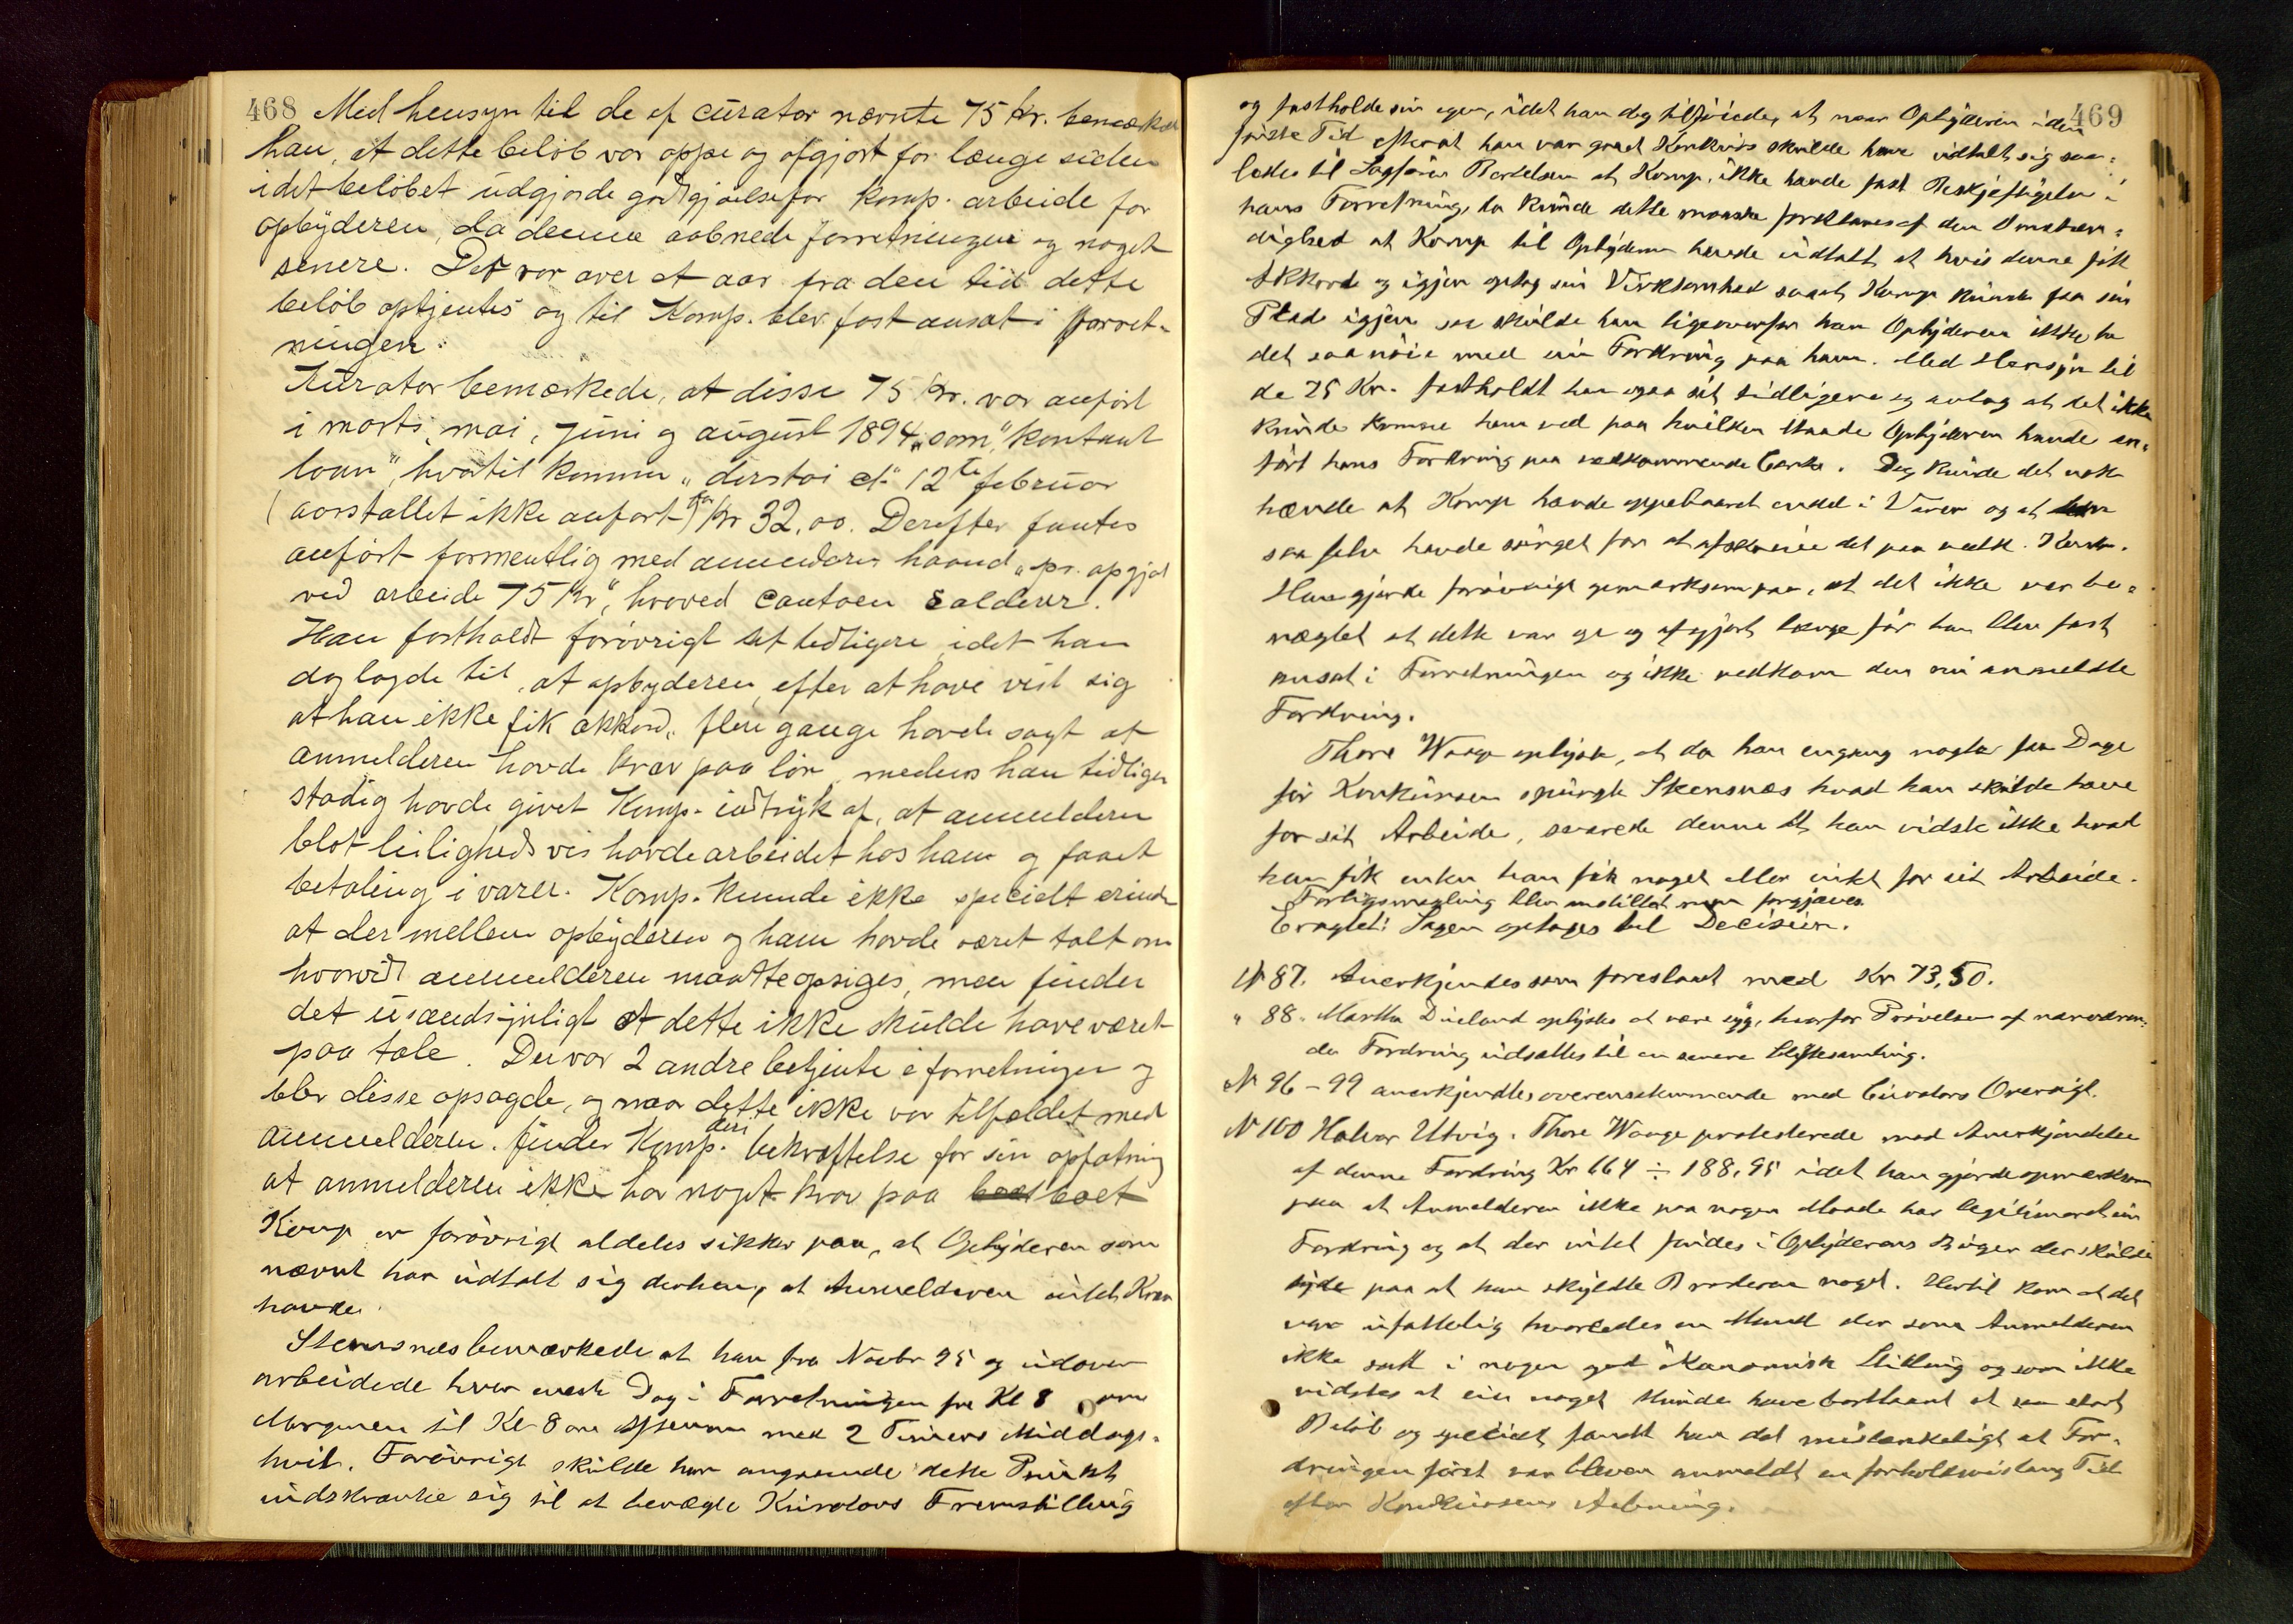 468 Med hensyn til de af curator nævnte 75 kr. bemærkede
han, at dette beløb var oppe og afgjort for længe siden
idet beløbet udgjorde godtgjørelse for komp. arbeide for
opbyderen, da denne aabnede forretningen og noget
senere. Det var over et aar fra den tid dette
beløb optjentes og til Komp. blev fast ansat i forret-
ningen.
Kurator bemærkede, at disse 75 Kr. var anført
i marts, mai, juni og august 1894 som "kontant
laan", hvortil kommer "derstoi et" 12te februar
(aarstallet ikke anført) for Kr 32,00. Derefter fantes
anført formentlig med anmelderens haand "pr. opgjør
ved arbeide 75 Kr", hvoved contoen salderer.
Han fastholdt forøvrigt sit tidligere idet han
dog lagde til, at opbyderen, efter at have vist sig
at han ikke fik akkord, flere gange havde sagt at
anmelderen havde krav paa løn, medens han tidligere
stadig havde givet Komp. indtryk af, at anmelderen
blot leilighedsvis havde arbeidet hos ham og faaet
betaling i varer. Komp. kunde ikke specielt erindre
at der mellem opbyderen og ham havde været talt om
hvorvidt anmelderen maatte opsiges, men finder
det usandsynligt at dette ikke skulde have været
paa tale. Der var 2 andre betjente i forretningen og
blev disse opsagde, og naar dette ikke var tilfældet med
anmelderen. finder Komp. deri bekræftelse for sin opfatning
at anmelderen ikke har noget krav paa boet
Komp er forøvrigt aldeles sikker paa, at Opbyderen som
nævnt har udtalt sig derhen, at Anmelderen intet Krav
havde.
Stensnæs bemærkede at han fra Novbr 95 og udover
arbeidede hver eneste Dag i Forretningen fra Kl 8 om
Morgenen til Kl 8 om Aftenen med 2 Timers Middags-
hvil. Forøvrigt skulde han angaaende dette Punkt
indskrænke sig til at benægte Kurators Fremstilling
469
og fastholde sin egen, idet han dog tilføiede, at naar Opbyderen i den
første Tid efterat han var gaaet Konkurs skulde have udtalt sig saa-
ledes til Sagfører Bertelsen at Komp. ikke havde fast Beskjæftigelse i
hans Forretning, da kunde dette maaske forklares af den Omstæn-
dighed at Komp til Opbyderen havde udtalt at hvis denne fik
Akkord og igjen optog sin Virksomhed saaat Komp kunde faa sin
Plads igjen saa skulde han ligeoverfor ham Opbyderen ikke ta
det saa nøie med sin Fordring paa ham. Med Hensyn til
de 75 Kr. fastholdt han ogsaa sit tidligere og antog at det ikke
kunde komme ham ved paa hvilken Maade Opbyderen havde an-
ført hans Fordring paa vedkommende Conto. Dog kunde det nok
hænde at Komp havde oppebaaret endel i Varer og at han
saa selv havde sørget for at afskrive det paa vedk. Konto.
Han gjorde forøvrigt opmærksom paa, at det ikke var be-
nægtet at dette var op og afgjort længe før han blev fast
ansat i Forretningen og ikke vedkom den nu anmeldte
Fordring.
Thore Waage oplyste, at da han engang nogle faa Dage
før Konkursen spurgte Stensnæs hvad han skulde have
for sit Arbeide, svarede denne at han vidste ikke hvad
han fik enten han fik noget eller intet for sit Arbeide.
Forligsmægling blev indstillet men forgjæves
Eragtet: Sagen optages til Decision.
N 87. Anerkjendes som foreslaaet med Kr 73,50.
" 88. Martha Dueland oplystes at være syg, hvorfor Prøvelsen af nærværen-
de Fordring udsættes til en senere Skiftesamling.
N 96 - 99 anerkjendtes overensstemmende med Curators Oversigt.
N 100 Halvor Utvig. Thore Waage protesterede mod Anerkjendelse
af denne Fordring Kr 664 ÷ 188,95 idet han gjorde opmærksom
paa at Anmelderen ikke paa nogen Maade har legitimeret sin
Fordring og at der intet findes i Opbyderens Bøger der skulde
tyde paa at han skyldte Broderen noget. Hertil kom at det
var ufattelig hvorledes en Mand der som Anmelderen
ikke satt i nogen god økonomisk Stilling og som ikke
vidstes at eie noget skunde have bortlaant et saa stort
Beløb og specielt fandt han det mistænkeligt at For-
dringen først var bleven anmeldt en forholdsvis lang Tid
efter Konkursens Aabning.